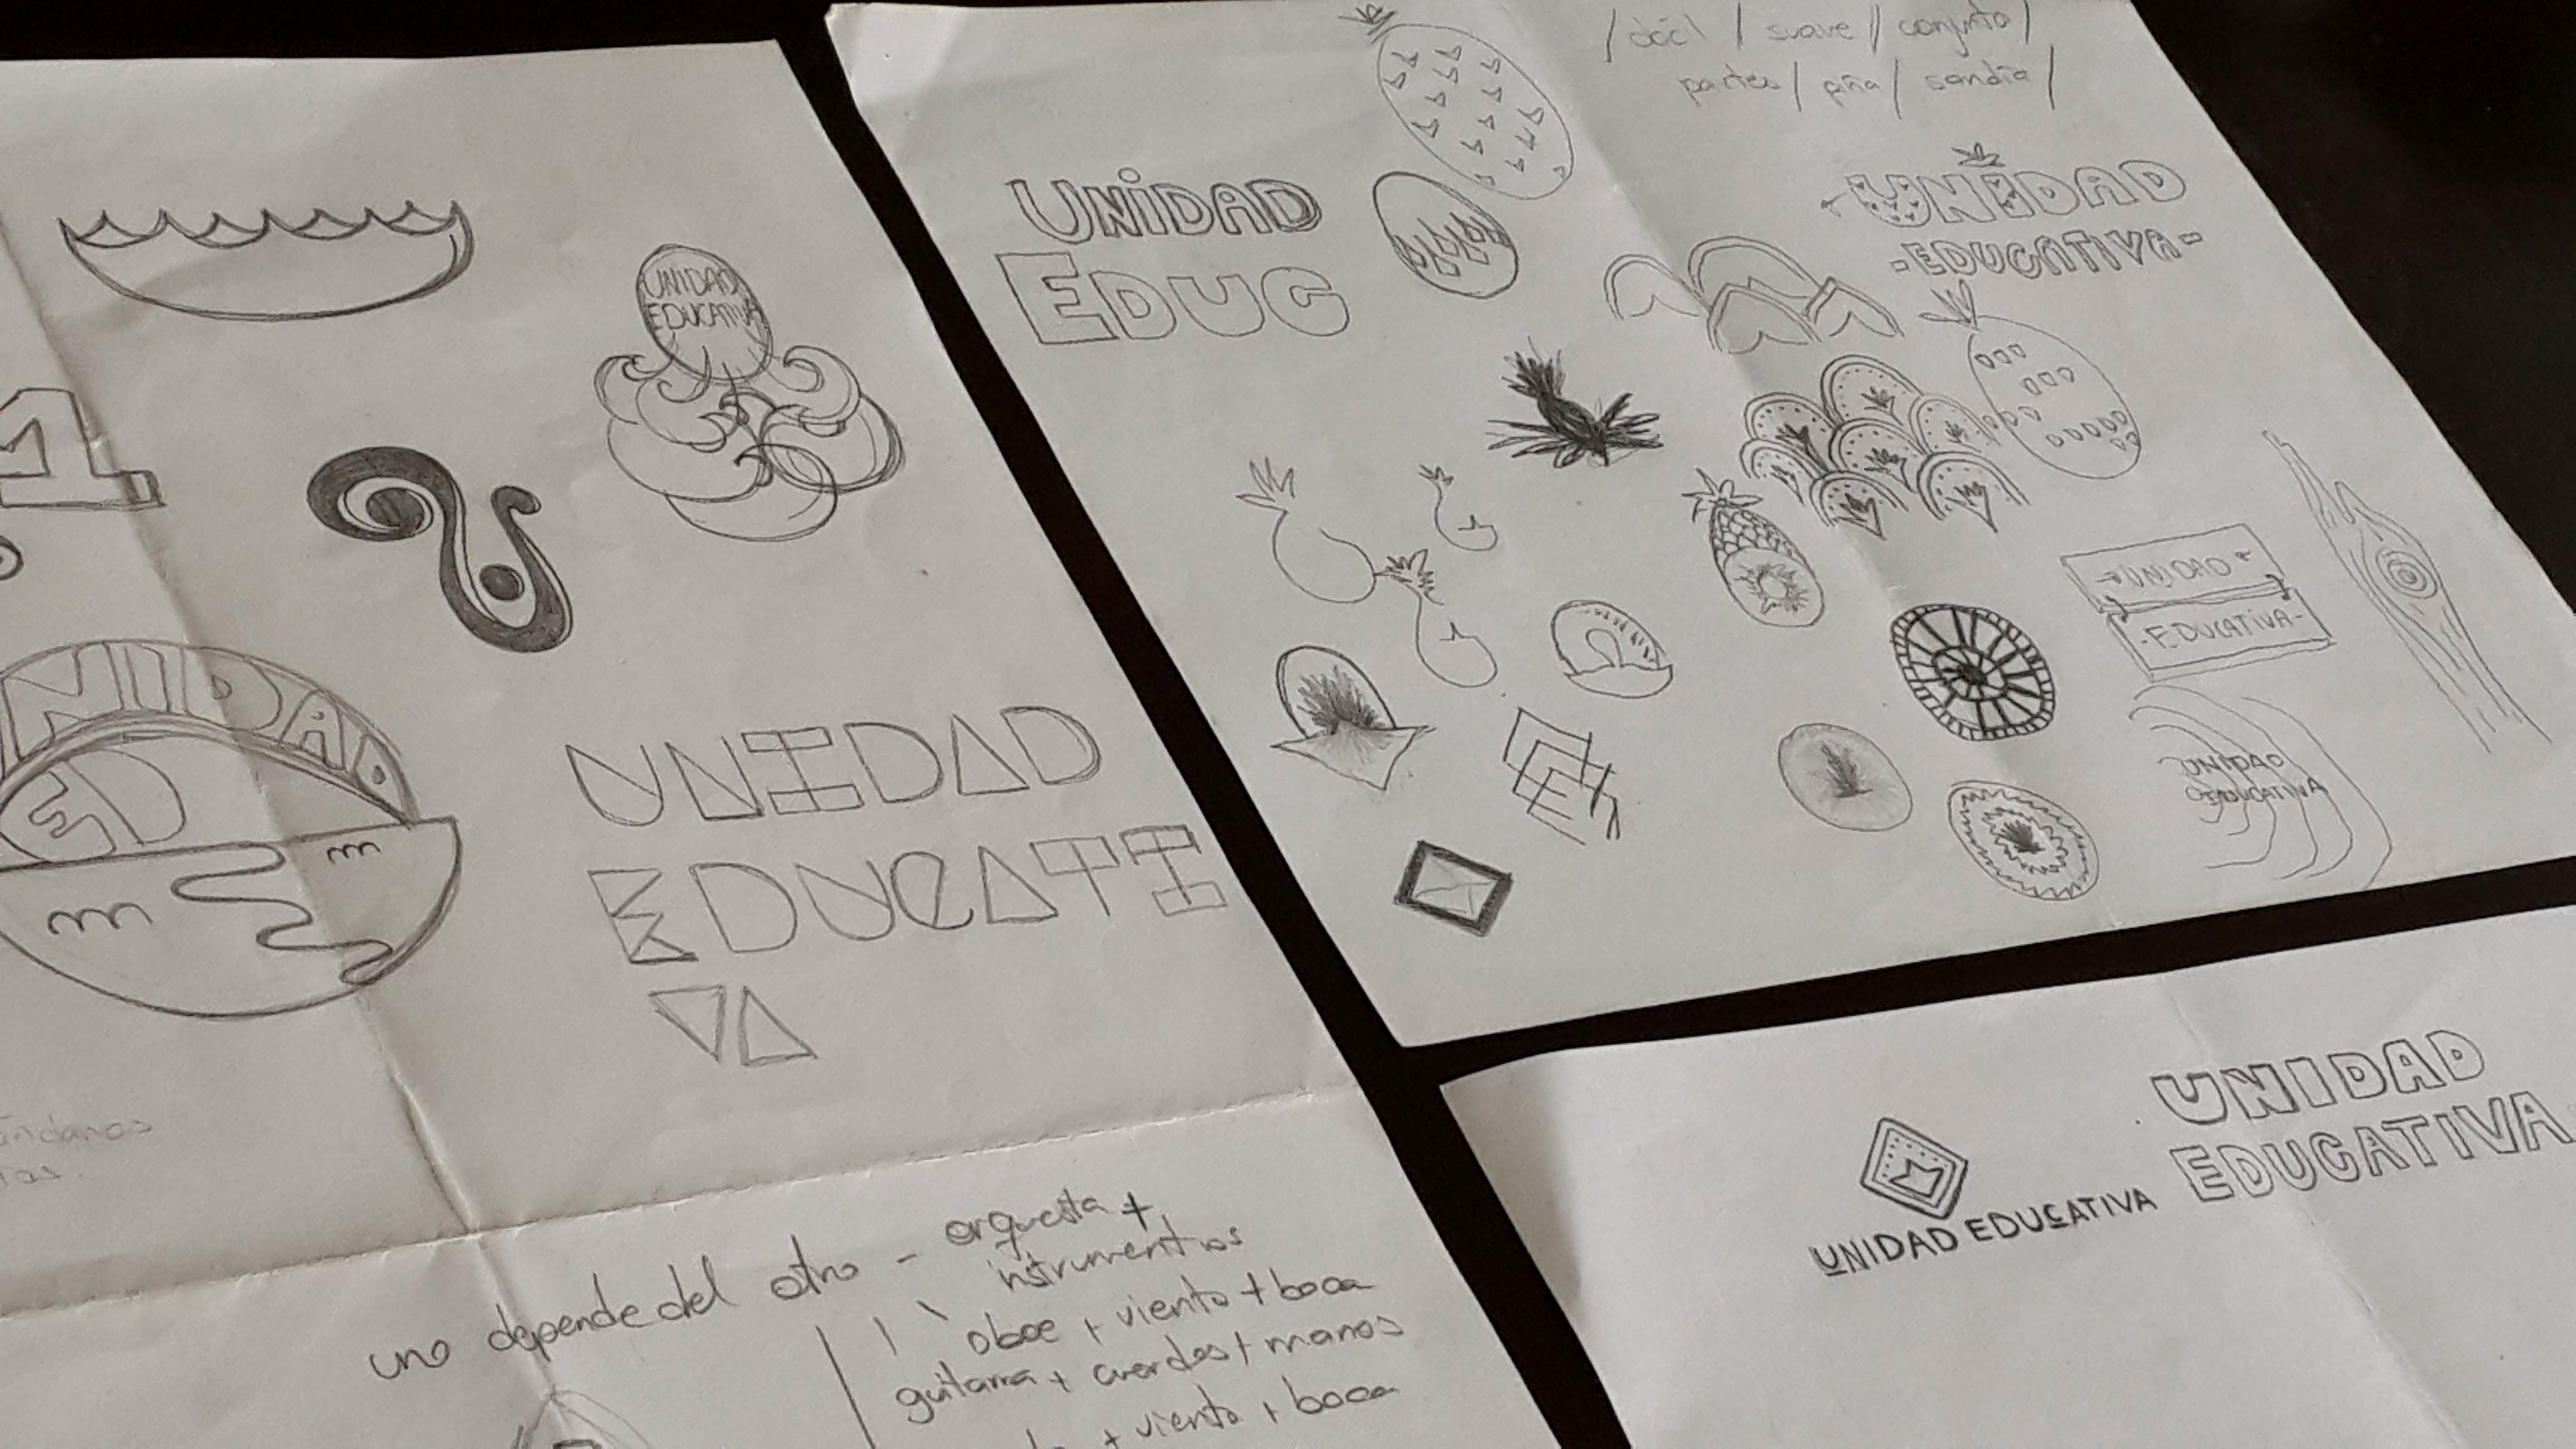 1
UNIDAD
EDUCATIVA
NIDAD
ED
UNIDAD
EDUCATI
VA
uno depende del otro - orquesta +
instrumentos
oboe + viento + boca
guitarra + cuerdas + manos
+ viento + boca
/ dócil / suave // conjunto /
partes / piña / sandía /
UNiDAD
EDUC
UNIDAD
-EDUCATIVA-
UNIDAD
-EDUCATiVA-
UNIDAD
EDUCATIVA
UNIDAD EDUCATIVA
UNIDAD
EDUCATIVA